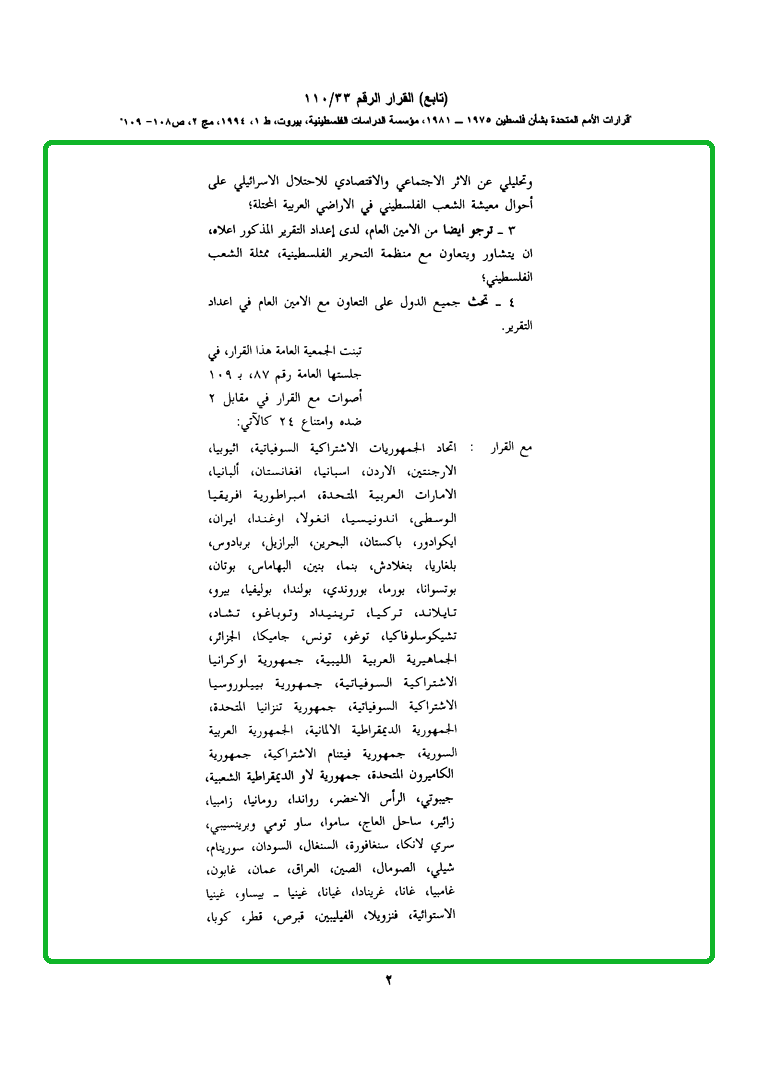 (تابع) القرار الرقم ١١٠/٣٣
"قرارات الأمم المتحدة بشأن فلسطين ١٩٧٥ ــ ١٩٨١، مؤسسة الدراسات الفلسطينية، بيروت، ط ١، ١٩٩٤، مج ٢، ص١٠٨- ١٠٩"
وتحليلي عن الاثر الاجتماعي والاقتصادي للاحتلال الاسرائيلي على
أحوال معيشة الشعب الفلسطيني في الاراضي العربية المحتلة؛
٣ ــ ترجو ايضا من الامين العام، لدى إعداد التقرير المذكور اعلاه،
ان يتشاور ويتعاون مع منظمة التحرير الفلسطينية، ممثلة الشعب
الفلسطيني؛
٤ ــ تحث جميع الدول على التعاون مع الامين العام في اعداد
التقرير.
تبنت الجمعية العامة هذا القرار، في
جلستها العامة رقم ٨٧، بـ ١٠٩
أصوات مع القرار في مقابل ٢
ضده وامتناع ٢٤ كالآتي:
مع القرار : اتحاد الجمهوريات الاشتراكية السوفياتية، اثيوبيا،
الارجنتين، الاردن، اسبانيا، افغانستان، ألبانيا،
الامارات العربية المتحدة، امبراطورية افريقيا
الوسطى، اندونيسيا، انغولا، اوغندا، ايران،
ايكوادور، باكستان، البحرين، البرازيل، بربادوس،
بلغاريا، بنغلادش، بنما، بنين، البهاماس، بوتان،
بوتسوانا، بورما، بوروندي، بولندا، بوليفيا، بيرو،
تايلاند، تركيا، ترينيداد وتوباغو، تشاد،
تشيكوسلوفاكيا، توغو، تونس، جاميكا، الجزائر،
الجماهيرية العربية الليبية، جمهورية اوكرانيا
الاشتراكية السوفياتية، جمهورية بييلوروسيا
الاشتراكية السوفياتية، جمهورية تنزانيا المتحدة،
الجمهورية الديمقراطية الالمانية، الجمهورية العربية
السورية، جمهورية فيتنام الاشتراكية، جمهورية
الكاميرون المتحدة، جمهورية لاو الديمقراطية الشعبية،
جيبوتي، الرأس الاخضر، رواندا، رومانيا، زامبيا،
زائير، ساحل العاج، ساموا، ساو تومي وبرينسيبي،
سري لانكا، سنغافورة، السنغال، السودان، سورينام،
شيلي، الصومال، الصين، العراق، عمان، غابون،
غامبيا، غانا، غرينادا، غيانا، غينيا ــ بيساو، غينيا
الاستوائية، فنزويلا، الفيليبين، قبرص، قطر، كوبا،
٢